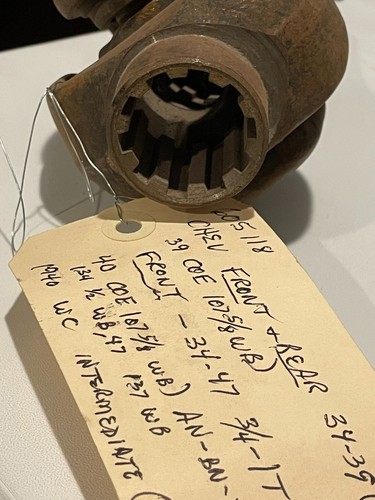 118
CHEV FRONT & REAR 34-39
39 COE 107 5/8 WB)
FRONT - 34-47 3/4-1T
40 COE 107 5/8 WB) AN-BN-
134 1/2 WB, 47 137 WB
1940 WC INTERMEDIATE (